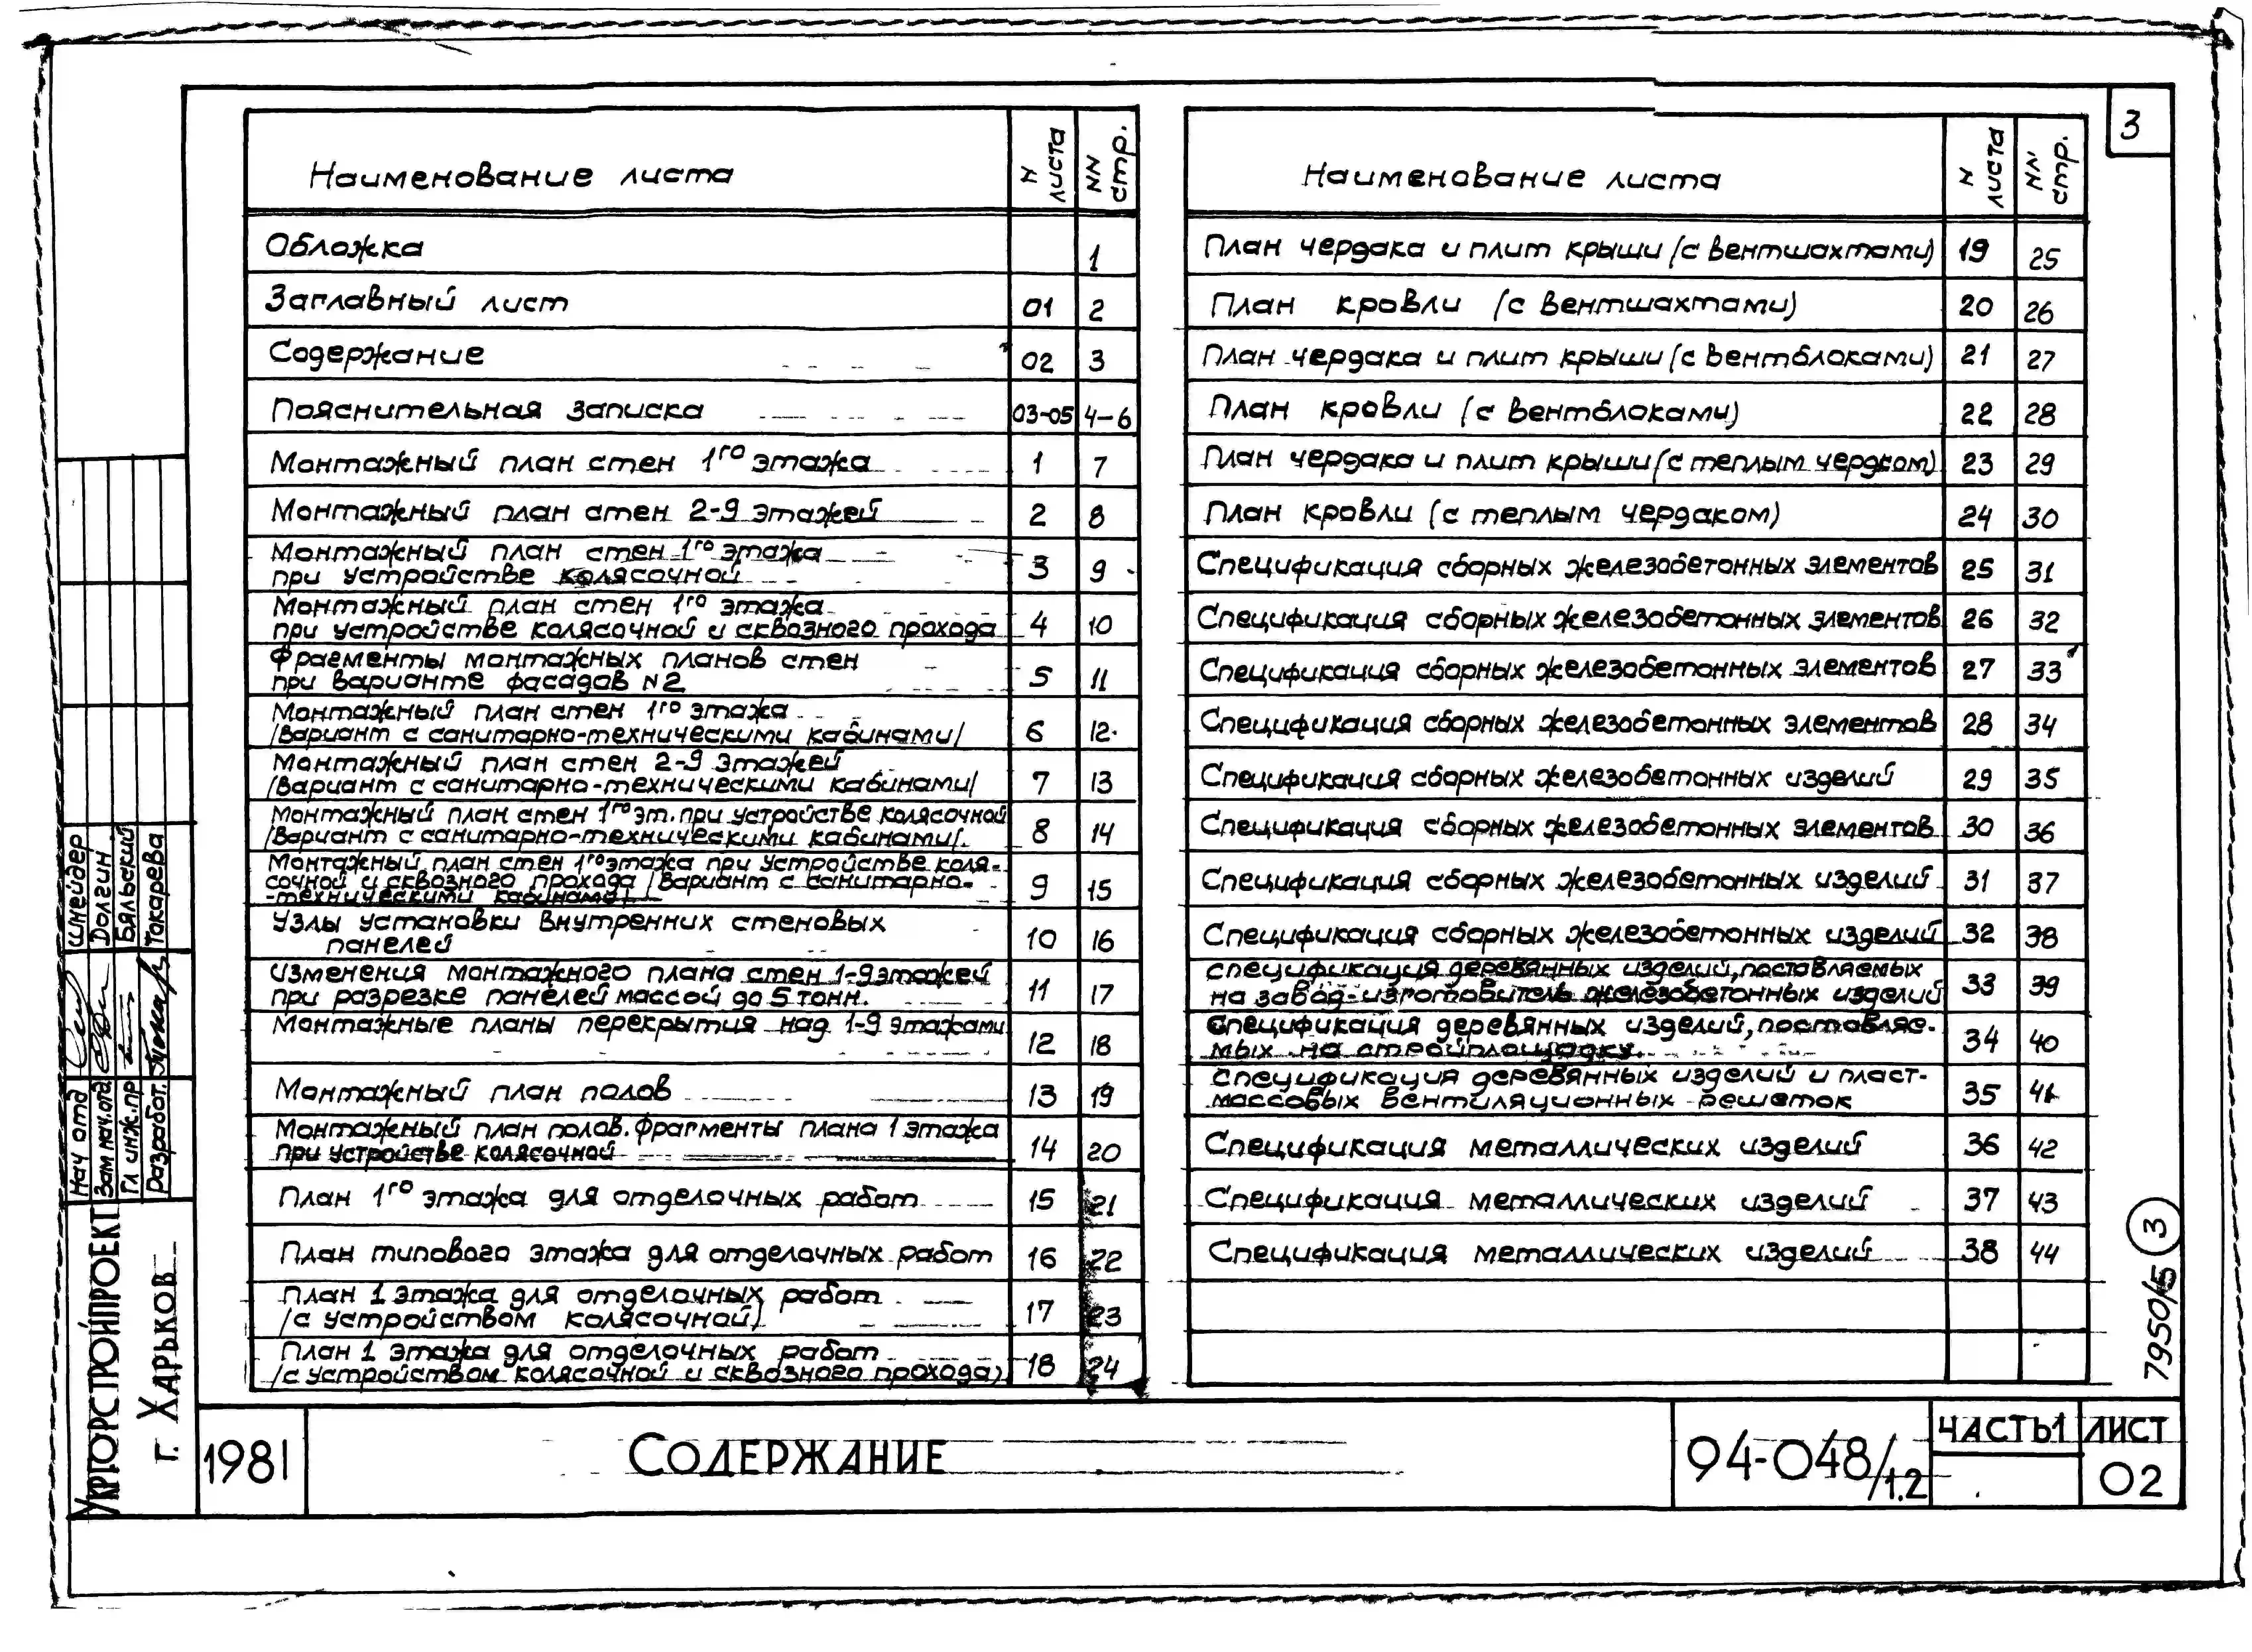 3
Наименование листа
N листа
NN стр.
Обложка 1
Заглавный лист 01 2
Содержание 02 3
Пояснительная записка 03-05 4-6
Монтажный план стен 1го этажа 1 7
Монтажный план стен 2-9 этажей 2 8
Монтажный план стен 1го этажа
при устройстве колясочной 3 9
Монтажный план стен 1го этажа
при устройстве колясочной и сквозного прохода 4 10
Фрагменты монтажных планов стен
при варианте фасадов N2 5 11
Монтажный план стен 1го этажа
/вариант с санитарно-техническими кабинами/ 6 12
Монтажный план стен 2-9 этажей
/вариант с санитарно-техническими кабинами/ 7 13
Монтажный план стен 1го эт. при устройстве колясочной
/вариант с санитарно-техническими кабинами/. 8 14
Монтажный план стен 1го этажа при устройстве коля-
сочной и сквозного прохода /вариант с санитарно-
-техническими кабинами/ 9 15
Узлы установки внутренних стеновых
панелей 10 16
Изменения монтажного плана стен 1-9 этажей
при разрезке панелей массой до 5 тонн. 11 17
Монтажные планы перекрытия над 1-9 этажами 12 18
Монтажный план полов 13 19
Монтажный план полов. Фрагменты плана 1 этажа
при устройстве колясочной 14 20
План 1го этажа для отделочных работ 15 21
План типового этажа для отделочных работ 16 22
План 1 этажа для отделочных работ
/с устройством колясочной) 17 23
План 1 этажа для отделочных работ
/с устройством колясочной и сквозного прохода) 18 24
Наименование листа
N листа
NN стр.
План чердака и плит крыши (с вентшахтами) 19 25
План кровли (с вентшахтами) 20 26
План чердака и плит крыши (с вентблоками) 21 27
План кровли (с вентблоками) 22 28
План чердака и плит крыши (с теплым чердком) 23 29
План кровли (с теплым чердаком) 24 30
Спецификация сборных железобетонных элементов 25 31
Спецификация сборных железобетонных элементов 26 32
Спецификация сборных железобетонных элементов 27 33
Спецификация сборных железобетонных элементов 28 34
Спецификация сборных железобетонных изделий 29 35
Спецификация сборных железобетонных элементов 30 36
Спецификация сборных железобетонных изделий 31 37
Спецификация сборных железобетонных изделий 32 38
Спецификация деревянных изделий, поставляемых
на завод-изготовитель железобетонных изделий 33 39
Спецификация деревянных изделий, поставляе-
мых на стройплощадку. 34 40
Спецификация деревянных изделий и пласт-
массовых вентиляционных решеток 35 41
Спецификация металлических изделий 36 42
Спецификация металлических изделий 37 43
Спецификация металлических изделий 38 44
Нач отд Шнейдер
Зам нач. отд Долгин
Гл инж. пр Бяльский
Разработ. Токарева
Укргорстройпроект
г. Харьков
1981
Содержание
94-048/1.2
Часть 1
Лист
02
7950/5
3